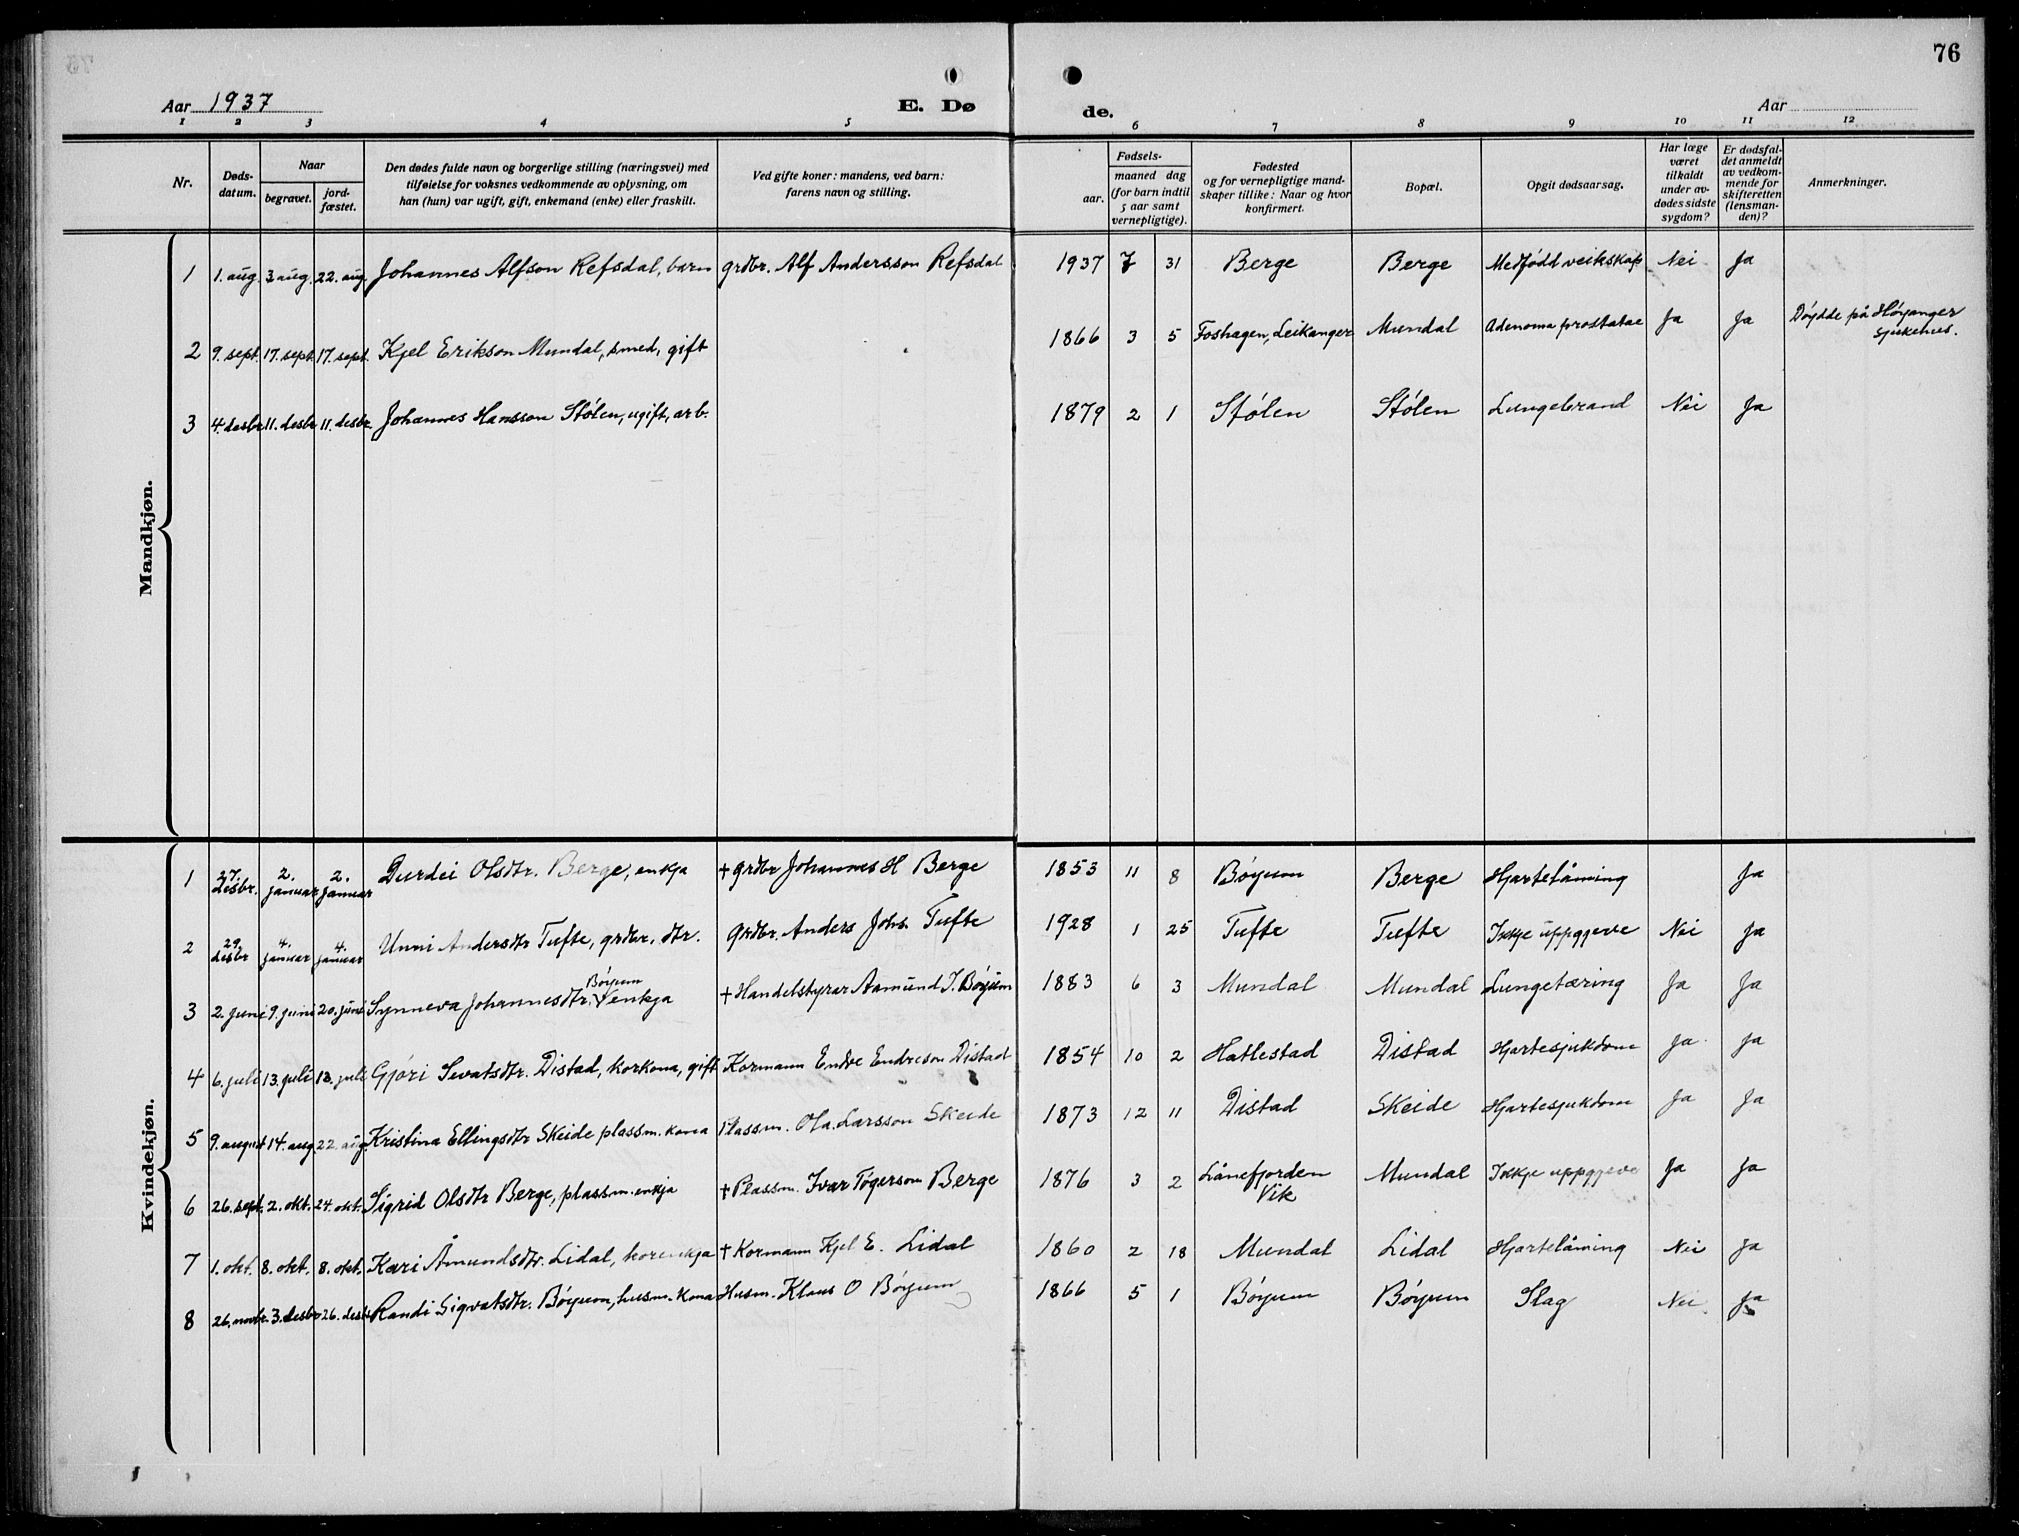 76
Aar 1937 E. Dø de. Aar
1 2 3 4 5 6 7 8 9 10 11 12
Nr.
Døds-
datum.
Naar
begravet.
jord-
fæstet.
Den dødes fulde navn og borgerlige stilling (næringsvei) med
tilføielse for voksnes vedkommende av oplysning, om
han (hun) var ugift, gift, enkemand (enke) eller fraskilt.
Ved gifte koner: mandens, ved barn:
farens navn og stilling.
Fødsels-
aar.
maaned dag
(for barn indtil
5 aar samt
vernepligtige).
Fødested
og for vernepligtige mand-
skaper tillike: Naar og hvor
konfirmert.
Bopæl.
Opgit dødsaarsag.
Har læge
været
tilkaldt
under av-
dødes sidste
sygdom?
Er dødsfal-
det anmeldt
av vedkom-
mende for
skifteretten
(lensman-
den)?
Anmerkninger.
Mandkjøn.
1 1. aug. 3 aug. 22. aug. Johannes Alfson Refsdal, barn grdbr. Alf Andersson Refsdal 1937 7 31 Berge Berge Medfødd veikskap Nei Ja
2 9. sept. 17. sept. 17. sept. Kjel Erikson Mundal, smed, gift 1866 3 5 Foshagen, Leikanger Mundal Adenoma prostatae Ja Ja Döydde på Höyanger
sjukehus.
3 4. desbr. 11. desbr. 11. desbr. Johannes Hansson Stölen, ugift, arb. 1879 2 1 Stölen Stölen Lungebrand Nei Ja
Kvindekjøn.
1 27. desbr. 2. januar 2. januar Durdei Olsdtr. Berge, enkja + grdbr Johannes H Berge 1853 11 8 Böyum Berge Hjartelåming Ja
2 29. desbr 4. januar 4. januar Unni Andersdtr Tufte, grdbr. dtr. Grdbr. Anders Joh. Tufte 1928 1 25 Tufte Tufte Ikkje uppgjeve Nei Ja
Böyum
3 2. juni 9. juni 20. juni Synneva Johannesdtr. enkja + Handelstyrar Aamund J. Böyum 1883 6 3 Mundal Mundal Lungetæring Ja Ja
4 6. juli 13. juli 13. juli Gjöri Sevatsdtr. Distad, korkona, gift Kormann Endre Endreson Distad 1854 10 2 Hatlestad Distad Hjartesjukdom Ja Ja
5 9. august 14. aug. 22. aug. Kristina Ellingsdtr Skeide plassm. kona Plassm. Ola Larsson Skeide 1873 12 11 Distad Skeide Hjartesjukdom Ja Ja
6 26. sept. 2. okt. 24. okt. Sigrid Olsdtr Berge, plassm. enkja + Plassm. Ivar Tögerson Berge 1876 3 2 Lånefjorden Mundal Ikkje uppgjeve Ja Ja
Vik
7 1. okt. 8. okt. 8. okt. Kari Åmundsdtr. Lidal, korenkja + Kormann Kjel E. Lidal 1860 2 18 Mundal Lidal Hjartelåming Nei Ja
8 26. novbr. 3. desbr 26. desbr Randi Sigvatsdtr. Böyum, husm. kona Husm. Klaus O Böyum 1866 5 1 Böyum Böyum Slag Nei Ja